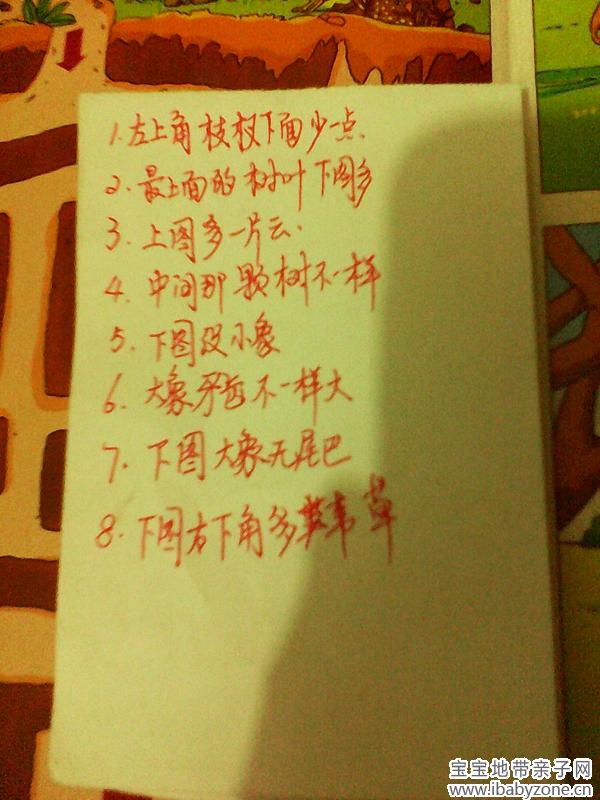 1.左上角枝杈下面少一点.
2.最上面的树叶下图多
3.上图多一片云.
4.中间那颗树不一样
5.下图没小象
6.大象牙齿不一样大
7.下图大象无尾巴
8.下图右下角多草
宝宝地带亲子网
www.ibabyzone.cn